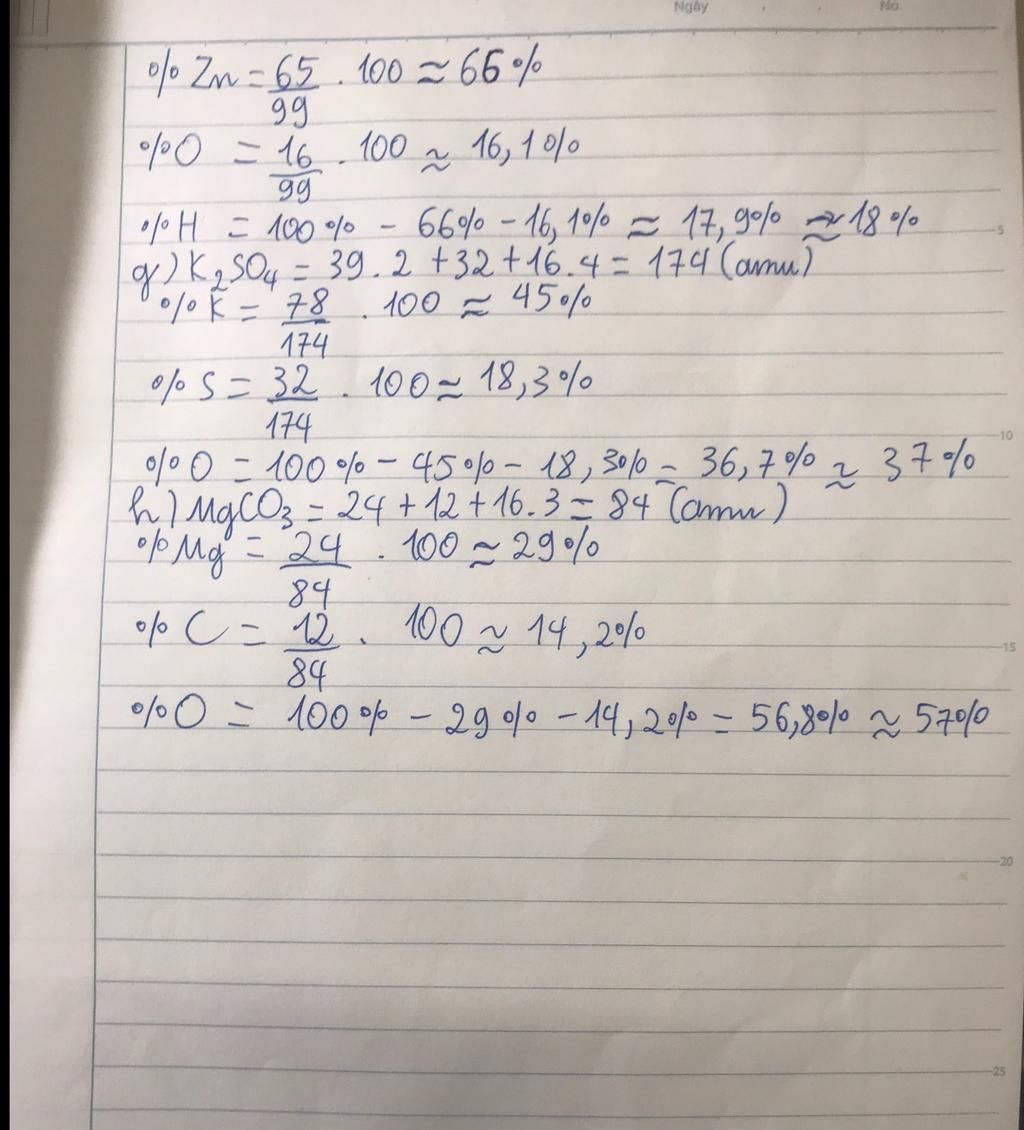 Ngày . . No.
% Zn = 65/99 . 100 ≈ 66%
%O = 16/99 . 100 ≈ 16,1%
%H = 100% - 66% - 16,1% ≈ 17,9% ≈ 18%
5
g) K₂SO₄ = 39.2 + 32 + 16.4 = 174 (amu)
% K = 78/174 . 100 ≈ 45%
% S = 32/174 . 100 ≈ 18,3%
10
%O = 100% - 45% - 18,3% = 36,7% ≈ 37%
h) MgCO₃ = 24 + 12 + 16.3 = 84 (amu)
%Mg = 24/84 . 100 ≈ 29%
% C = 12/84 . 100 ≈ 14,2%
15
%O = 100% - 29% - 14,2% = 56,8% ≈ 57%
20
25